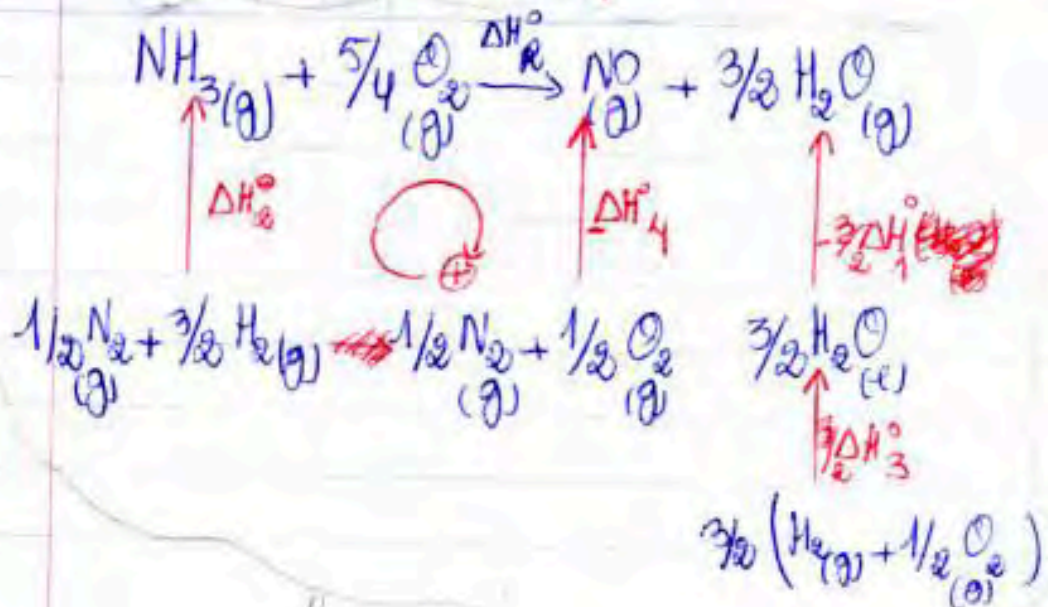 NH₃(g) + 5/4 O₂(g) ΔH°R → NO(g) + 3/2 H₂O(g)
ΔH°₂ ⊕ -ΔH°₄ -3/2 ΔH°₁
1/2 N₂(g) + 3/2 H₂(g) 1/2 N₂(g) + 1/2 O₂(g) 3/2 H₂O(l)
3/2 ΔH°₃
3/2 (H₂(g) + 1/2 O₂(g))